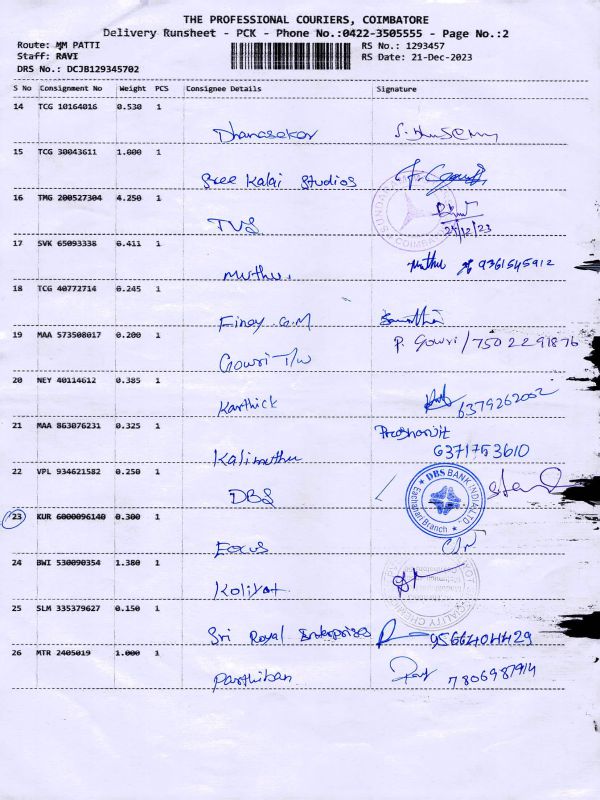 THE PROFESSIONAL COURIERS, COIMBATORE
Delivery Runsheet - PCK - Phone No.:0422-3505555 - Page No.:2
Route: MM PATTI
Staff: RAVI
DRS No.: DCJB129345702
RS No.: 1293457
RS Date: 21-Dec-2023
S No Consignment No Weight PCS Consignee Details Signature
14 TCG 10164016 0.530 1
Dhanasekar
15 TCG 30043611 1.000 1
Sree Kalai Studios
16 TMG 200527304 4.250 1
TVS
17 SVK 65093338 0.411 1
Muthu. Muthu 9361545912
18 TCG 40772714 0.245 1
Finoy G.M
19 MAA 573508017 0.200 1 P. Gowri / 7502291876
Gowri T/W
20 NEY 40114612 0.385 1
Karthick 6379262002
21 MAA 863076231 0.325 1 Prashanjit
Kalimuthu 6371753610
22 VPL 934621582 0.250 1
DBS DBS BANK INDIA LTD.
Eachanari Branch
23 KUR 6000096140 0.300 1
Focus
24 BWI 530090354 1.380 1
25 SLM 335379627 0.150 1
Sri Royal Enterprises 9566404429
26 MTR 2405019 1.000 1
Parthiban 7806987914